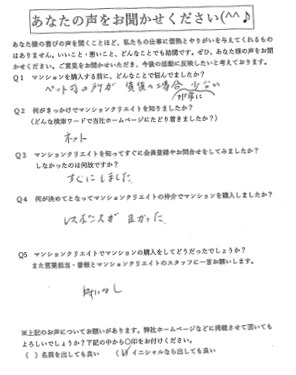 あなたの声をお聞かせください(^^♪
あなた様の喜びの声を聞くことほど、私たちの仕事に情熱とやりがいを与えてくれるもの
はありません。いいこと・悪いこと、どんなことでも結構です。ぜひ、あなた様の声をお聞
かせください。ご意見をお聞かせいただき、今後の活動に反映したいと考えております。
Q1 マンションを購入する前に、どんなことで悩んでましたか?
ペット可の所が賃貸の場合、非常に少ない
Q2 何がきっかけでマンションクリエイトを知りましたか?
(どんな検索ワードで当社ホームページにたどり着きましたか?)
ネット
Q3 マンションクリエイトを知ってすぐに会員登録やお問合せをしてみましたか?
しなかったのは何故ですか?
すぐにしました
Q4 何が決めてとなってマンションクリエイトの仲介でマンションを購入しましたか?
レスポンスが良かった
Q5 マンションクリエイトでマンションの購入をしてどうだったでしょうか?
また営業担当・曽根とマンションクリエイトのスタッフに一言お願いします。
特になし
※上記のお声についてお願いがあります。弊社ホームページなどに掲載させて頂いても
よろしいでしょうか?下記の中から○印をお付けください。
( )名前を出しても良い (レ)イニシャルなら出しても良い